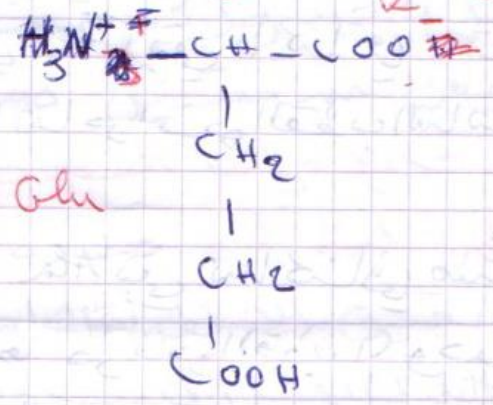 H3N+ — CH — COO-
|
CH2
Glu
|
CH2
|
COOH